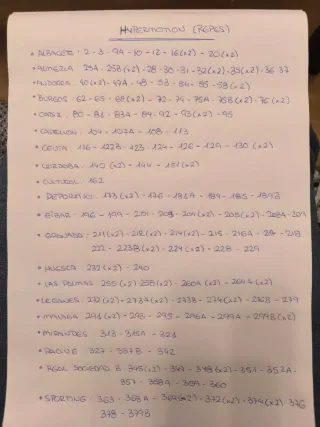 HYPERMOTION (REPES)
• ALBACETE - 2 - 3 - 9A - 10 - 12 - 16(x2) - 20(x2)
• ALMERIA 25A - 25B(x2) - 28 - 30 - 31 - 32(x2) - 35(x2) - 36 37
• ANDORRA 40(x2) - 47A - 48 - 53 - 54 - 55 - 58(x2)
• BURGOS 62 - 65 - 68(x2) - 72 - 74 - 75A - 75B(x2) - 76(x2)
• CADIZ 80 - 81 - 83A - 84 - 92 - 93(x2) - 95
• CASTELLON - 104 - 107A - 108 - 113
• CEUTA 116 - 122B - 123 - 124 - 126 - 129 - 130 (x2)
• CORDOBA 140 (x2) - 144 - 151(x2)
• CULTURAL 162
• DEPORTIVO - 173(x2) - 176 - 181A - 184 - 185 - 189B
• EIBAR - 196 - 199 - 201 - 203 - 204(x2) - 205(x2) - 208A - 209
• GRANADA - 211(x2) - 212(x2) - 214(x2) - 215 - 216A - 217 - 218
222 - 223B(x2) - 224(x2) - 228 - 229
• HUESCA 232(x2) - 240
• LAS PALMAS 255(x2) 258(x2) - 260A(x2) - 264A(x2)
• LEGANES 272(x2) - 273A(x2) - 273B - 274(x2) - 276B - 279
• MALAGA 291(x2) - 293 - 295 - 296A - 299A - 299B(x2)
• MIRANDES 313 - 315A - 321
• RACING 327 - 337B - 342
• REAL SOCIEDAD B 345(x2) - 347 - 348(x2) - 351 - 352A -
357 - 358A - 359 - 360
• SPORTING - 363 - 368A - 369(x2) - 372(x2) - 374(x2) - 376
378 - 379B